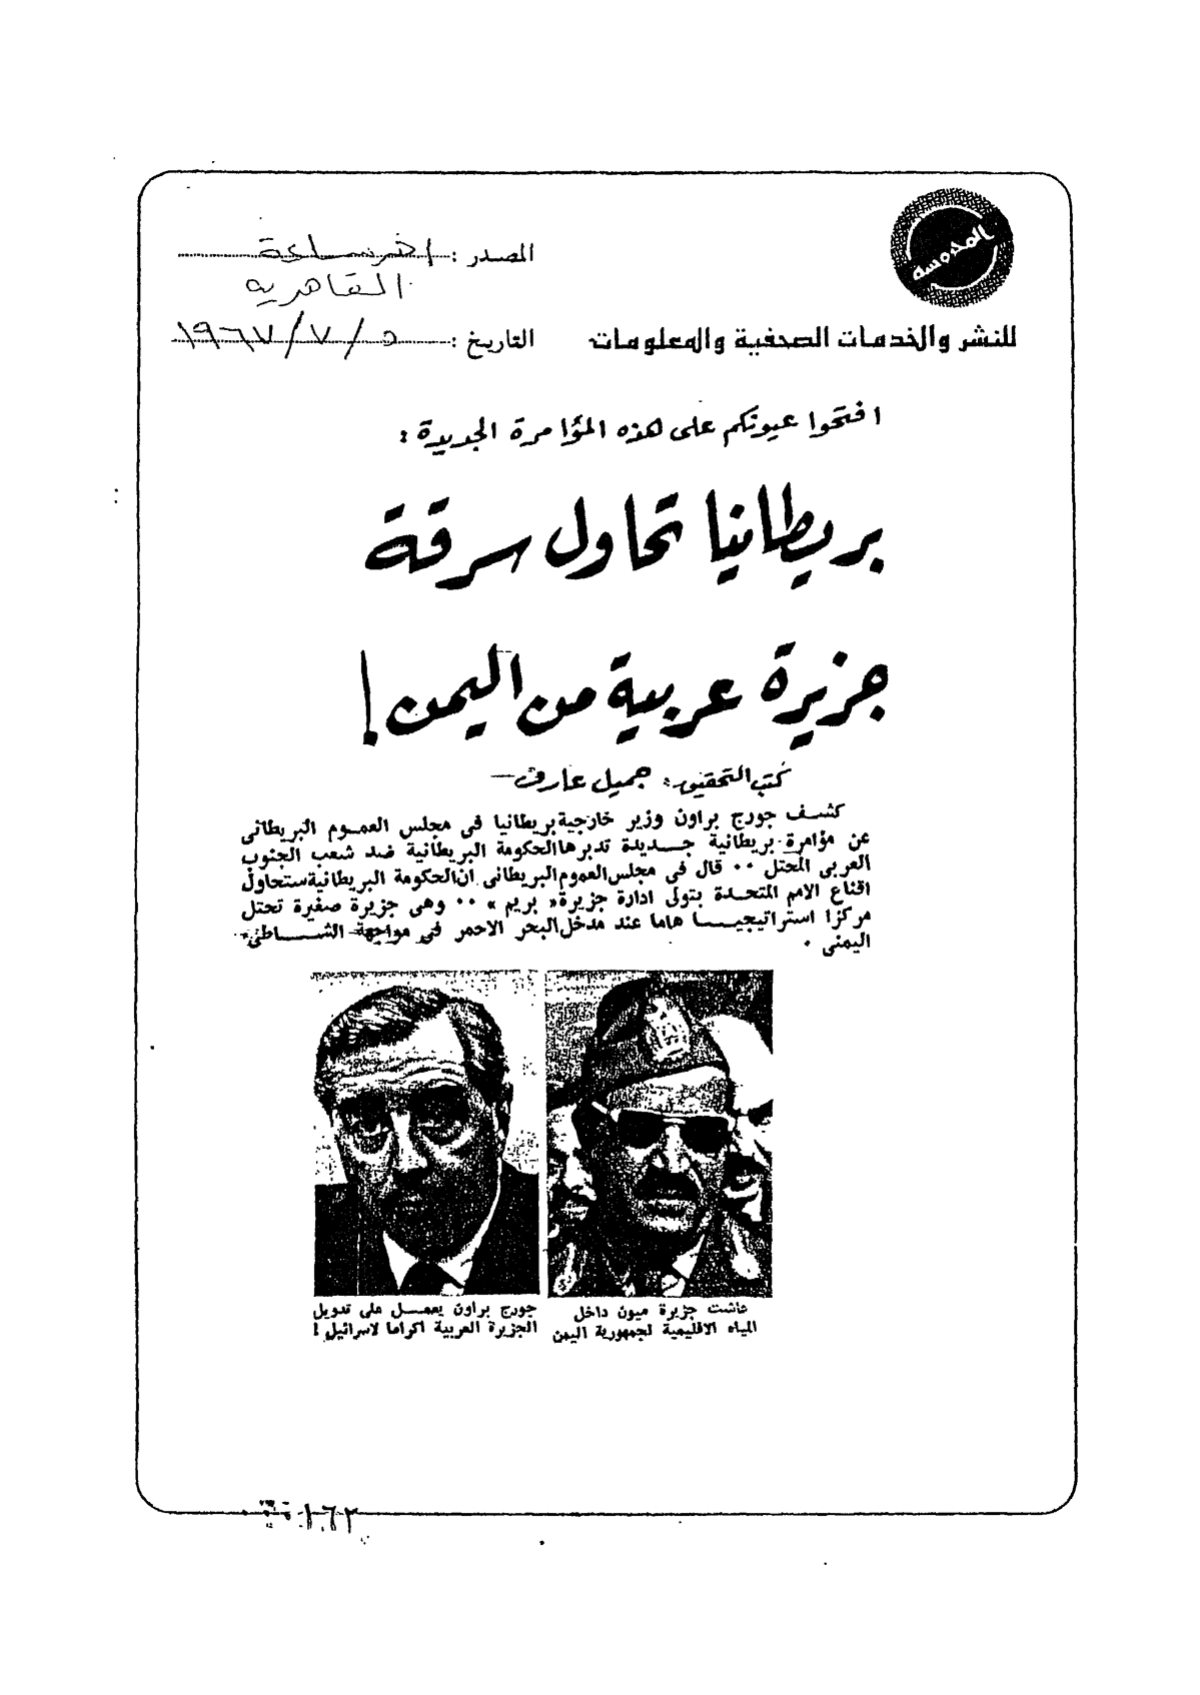 المحروسة
المصدر : اخر ساعة
القاهرية
للنشر والخدمات الصحفية والمعلومات
التاريخ : ٥ / ٧ / ١٩٦٧
افتحوا عيونكم على هذه المؤامرة الجديدة :
بريطانيا تحاول سرقة
جزيرة عربية من اليمن !
كتب التحقيق : جميل عارف
كشف جورج براون وزير خارجية بريطانيا فى مجلس العموم البريطانى
عن مؤامرة بريطانية جديدة تدبرها الحكومة البريطانية ضد شعب الجنوب
العربى المحتل ٠٠ قال فى مجلس العموم البريطانى ان الحكومة البريطانية ستحاول
اقناع الامم المتحدة بتولى ادارة جزيرة « بريم » ٠٠ وهى جزيرة صغيرة تحتل
مركزا استراتيجيا هاما عند مدخل البحر الاحمر فى مواجهة الشاطئ
اليمنى ٠
عاشت جزيرة ميون داخل
المياه الاقليمية لجمهورية اليمن
جورج براون يعمل على تدويل
الجزيرة العربية اكراما لاسرائيل !